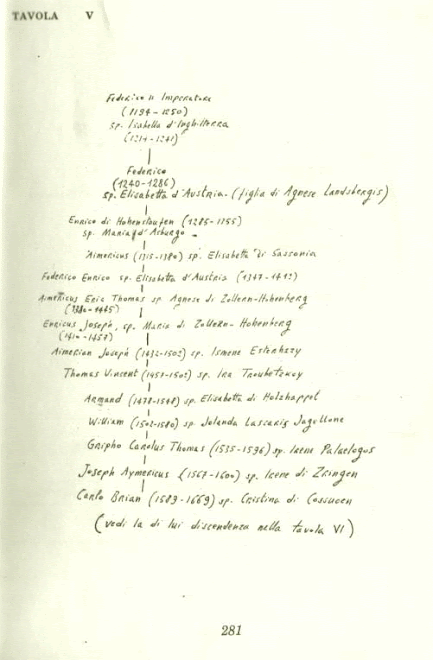 TAVOLA V
Federico II Imperatore
(1194-1250)
sp. Isabella d'Inghilterra
(1214-1241)
Federico
(1240-1286)
sp. Elisabetta d'Austria - (figlia di Agnese Landsbergis)
Enrico di Hohenstaufen (1285-1355)
sp. Maria d'Asburgo
Aimericus (1315-1380) sp. Elisabetta di Sassonia
Federico Enrico sp. Elisabetta d'Austria (1347-1412)
Aimericus Eric Thomas sp Agnese di Zollern-Hohenberg
(1380-1445)
Enricus Joseph, sp. Maria di Zollern-Hohenberg
(1410-1457)
Aimerian Joseph (1432-1502) sp. Ismene Esterhazy
Thomas Vinsent (1457-1502) sp. Ira Troubetzkoy
Armand (1478-1548) sp Elisabetta di Holzhappel
William (1502-1580) sp Jolanda Lascaris Jagellone
Gripho Carolus Thomas (1535-1596) sp. Irene Palaelogus
Joseph Aymericus (1567-1600) sp. Irene di Zringen
Carlo Brian (1589-1669) sp. Cristina di Cossucen
(vedi la di lui discendenza nella tavola VI)
281